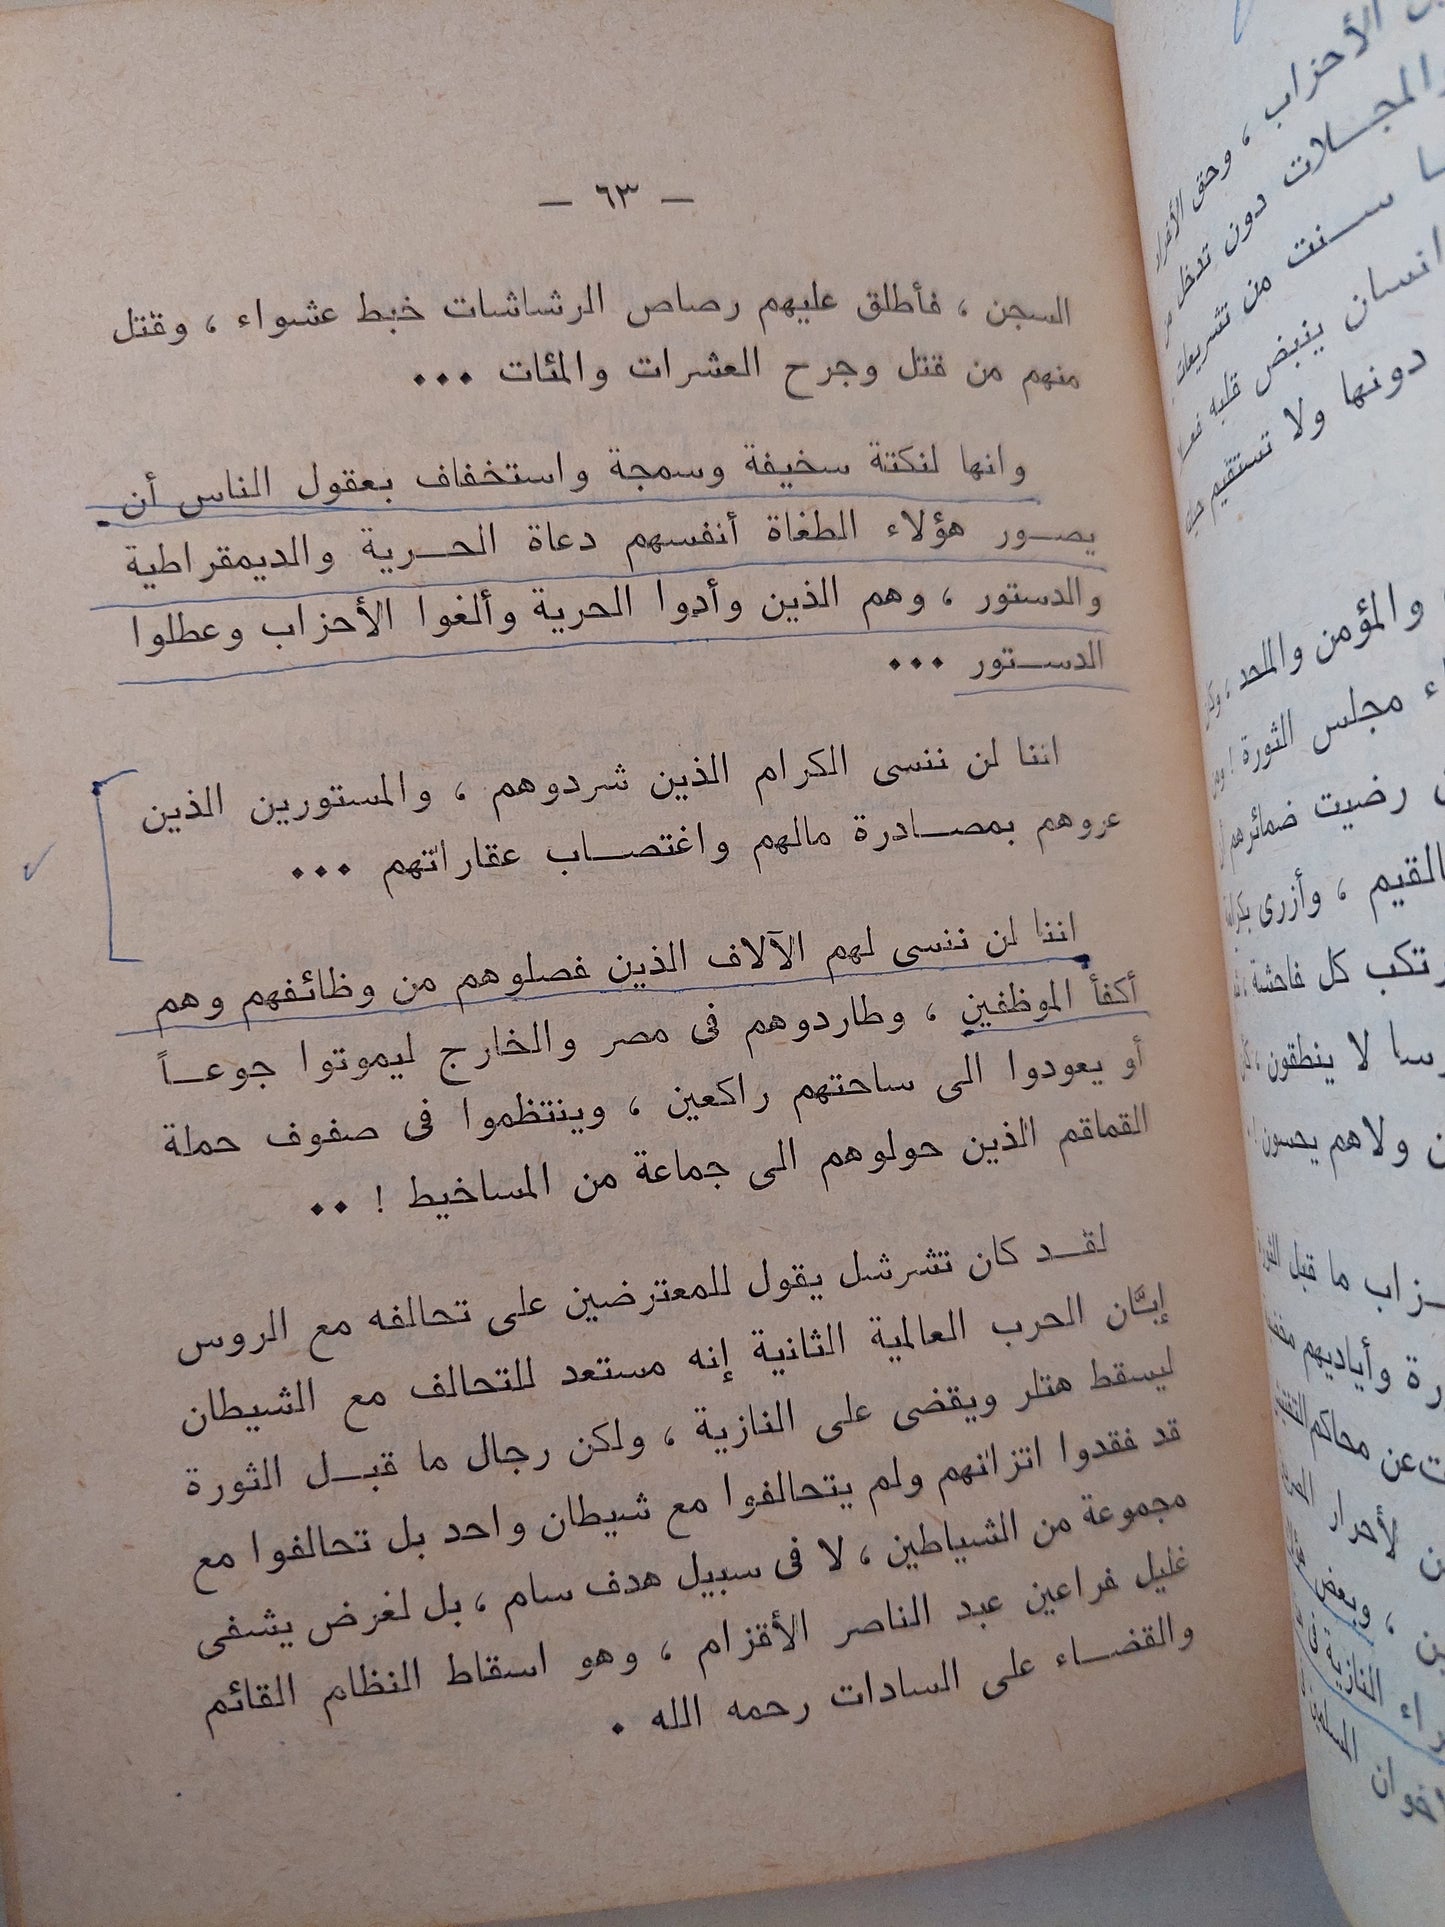 — ٦٣ —
السجن ، فأطلق عليهم رصاص الرشاشات خبط عشواء ، وقتل
منهم من قتل وجرح العشرات والمئات ...
وانها لنكتة سخيفة وسمجة واستخفاف بعقول الناس أن
يصـور هؤلاء الطغاة أنفسهم دعاة الحـرية والديمقراطية
والدستور ، وهم الذين وأدوا الحرية وألغوا الأحزاب وعطلوا
الدسـتور ...
اننا لن ننسى الكرام الذين شردوهم ، والمستورين الذين
عروهم بمصـادرة مالهم واغتصـاب عقاراتهم ...
اننا لن ننسى لهم الآلاف الذين فصلوهم من وظائفهم وهم
أكفأ الموظفين ، وطاردوهم فى مصر والخارج ليموتوا جوعـاً
أو يعودوا الى ساحتهم راكعين ، وينتظموا فى صفوف حملة
القماقم الذين حولوهم الى جماعة من المساخيط ! ..
لقـد كان تشرشل يقول للمعترضين على تحالفه مع الروس
إبَّان الحرب العالمية الثانية إنه مستعد للتحالف مع الشيطان
ليسقط هتلر ويقضى على النازية ، ولكن رجال ما قبـل الثورة
قد فقدوا اتزانهم ولم يتحالفوا مع شيطان واحد بل تحالفوا مع
مجموعة من الشياطين ، لا فى سبيل هدف سام ، بل لغرض يشفى
غليل فراعين عبد الناصر الأقزام ، وهو اسقاط النظام القائم
والقضـاء على السادات رحمه الله .
الأحزاب ، وحق الأفراد
والمجـلات دون تدخل من
سـنت من تشريعات
انسان ينبض قلبه
دونها ولا تستقيم
والمؤمن والملحد ،
مجلس الثورة !
رضيت ضمائرهم
القيم ، وأزرى
كل فاحشة ،
لا ينطقون ،
ولاهم يحسون !
ما قبل
وأياديهم
عن محاكم
لأحرار
، وبعض
النازية